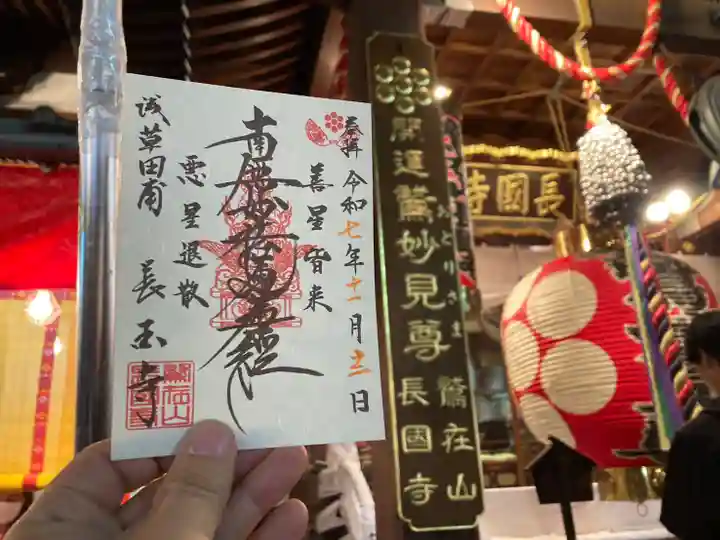 奉拝 令和七年十一月十二日
善星皆来
南無妙法蓮華経
悪星退散
浅草田甫 長国寺
開運鷲妙見尊
おとりさま
鷲在山
長國寺
長國寺